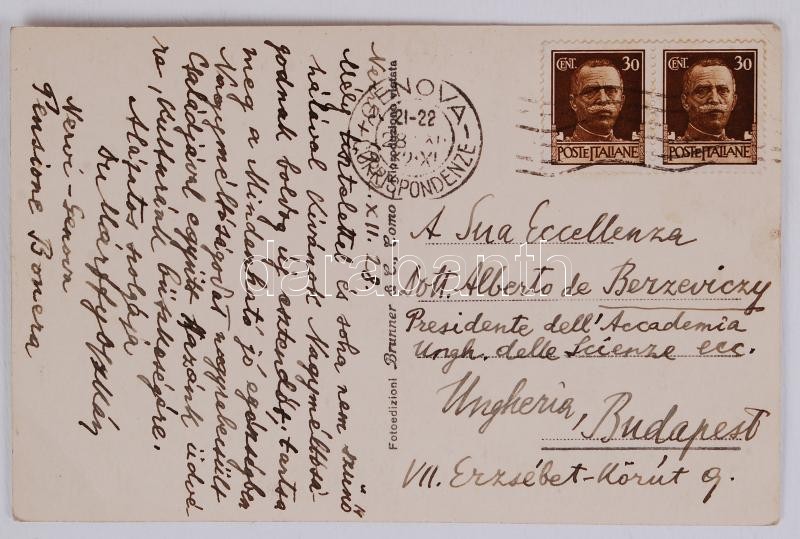 CENT. 30
POSTE ITALIANE
CENT. 30
POSTE ITALIANE
GENOVA
21-22
XI
CORRISPONDENZE
A Sua Eccellenza
Dott. Alberto de Berzeviczy
Presidente dell'Accademia
Ungh. delle Scienze ecc.
Ungheria, Budapest
VII. Erzsébet-Körút 9.
Fotoedizioni Brunner & C., Como - Riproduzione vietata
XII. 28.
Mély tisztelettel és soha nem szünő
hálával kivánok Nagyméltósá-
godnak boldog új esztendőt, tartsa
meg a Mindenható jó egészségben
Nagyméltóságodat nagyrabecsült
Családjával együtt Hazánk üdvé
re, Kulturánk büszkeségére.
Alázatos szolgája
Dr Márffy Oszkár
Nervi - Genova
Pensione Bonera
darabanth